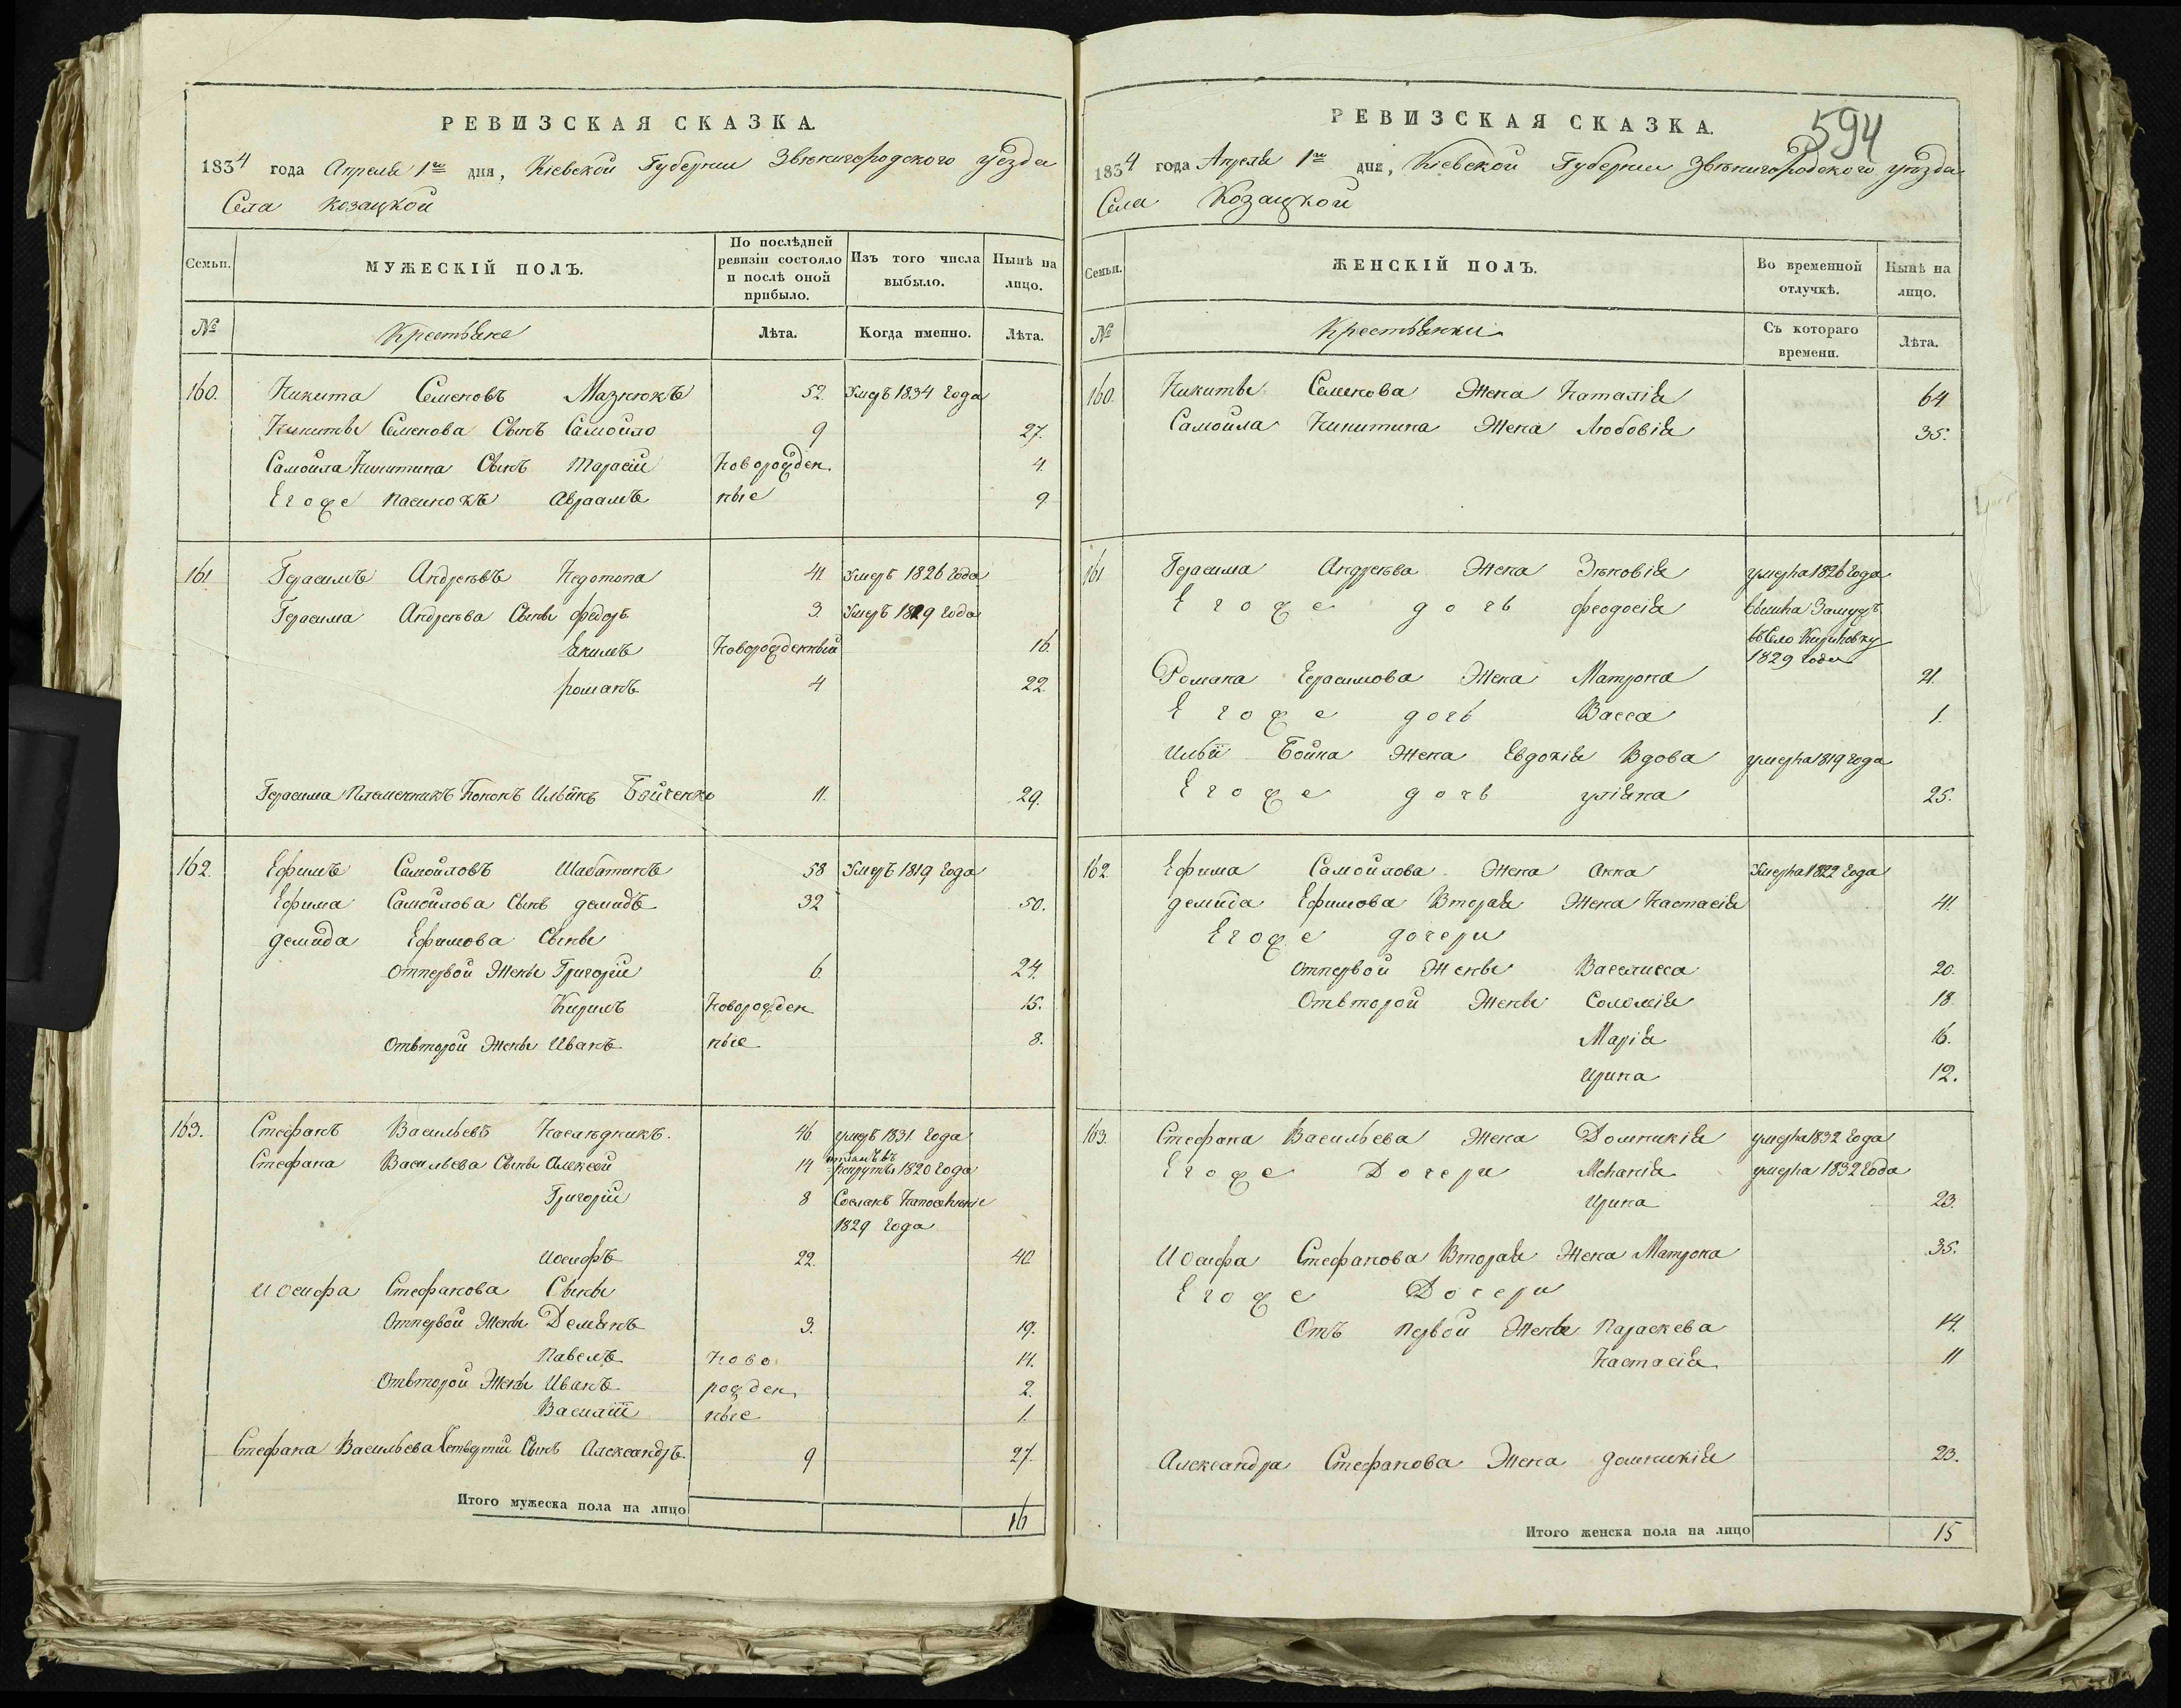 РЕВИЗСКАЯ СКАЗКА.
1834 года Апреля 1го дня, Киевской Губернии Звенигородского уезда
Села Козацкой
Семьи. МУЖЕСКІЙ ПОЛЪ. По послѣдней ревизіи состояло и послѣ оной прибыло. Изъ того числа выбыло. Нынѣ на лицо.
№ Крестьяне Лѣта. Когда именно. Лѣта.
160. Никита Семеновъ Мазнюкъ 52. Умеръ 1834 года
Никиты Семенова Сынъ Самойло 9 27.
Самойла Никитина Сынъ Тарасій Новорожден 4.
Егоже пасинокъ Авраамъ ные 9
161 Герасимъ Андреевъ Недотопа 41 Умеръ 1826 года
Герасима Андреева Сыны федоръ 3. Умеръ 1829 года
Якимъ Новорожденный 16.
романъ 4 22.
Герасима Племенникъ Кононъ Ильинъ Бойченко 11. 29.
162. Ефимъ Самойловъ Шабатинъ 58 Умеръ 1819 года
Ефима Самойлова Сынъ демидъ 32 50.
демида Ефимова Сыны
Отпервой Жены Григорій 6. 24.
Кирилъ Новорожден 15.
Отвторой Жены Иванъ ные 8.
163. Стефанъ Васильевъ Насадникъ. 46 умеръ 1831 года
Стефана Васильева Сыны Алексей 14 отданъ въ рекруты 1820 года
Григорій 8 Сосланъ Напоселеніе
1829 года
Иосифъ 22. 40
Иосифа Стефанова Сыны
Отпервой Жены Демянъ 3. 19.
Павелъ Ново 14.
Отвторой Жены Иванъ рожден 2.
Василій ные 1.
Стефана Васильева Четвертій Сынъ Александръ 9 27.
Итого мужеска пола на лицо 16
594
РЕВИЗСКАЯ СКАЗКА.
1834 года Апреля 1го дня, Киевской Губернии Звенигородского уезда
Села Козацкой
Семьи. ЖЕНСКІЙ ПОЛЪ. Во временной отлучкѣ. Нынѣ на лицо.
№ Крестьянки Съ котораго времени. Лѣта.
160. Никиты Семенова Жена Наталія 64
Самойла Никитина Жена Любовія 35.
161 Герасима Андреева Жена Зеновія умерла 1826 года
Егоже дочь феодосія вышла Замужъ
въ Село Кириловку
1829 года
Романа Герасимова Жена Матрона 21.
Егоже дочь Васса 1.
Ильи Бойка Жена Евдокія Вдова умерла 1819 года
Егоже дочь уліяна 25.
162 Ефима Самойлова Жена Анна Умерла 1822 года
демида Ефимова Вторая Жена Настасія 41.
Егоже дочери
Отпервой Жены Василисса 20.
Отвторой Жены Соломія 18
Марія 16.
Ирина 12.
163. Стефана Васильева Жена Домникія умерла 1832 года
Егоже Дочери Меланія умерла 1832 года
Ирина 23.
Иосифа Стефанова Вторая Жена Матрона 35.
Егоже Дочери
Отъ первой Жены Параскева 14.
Настасія 11
Александра Стефанова Жена домникія 23.
Итого женска пола на лицо 15